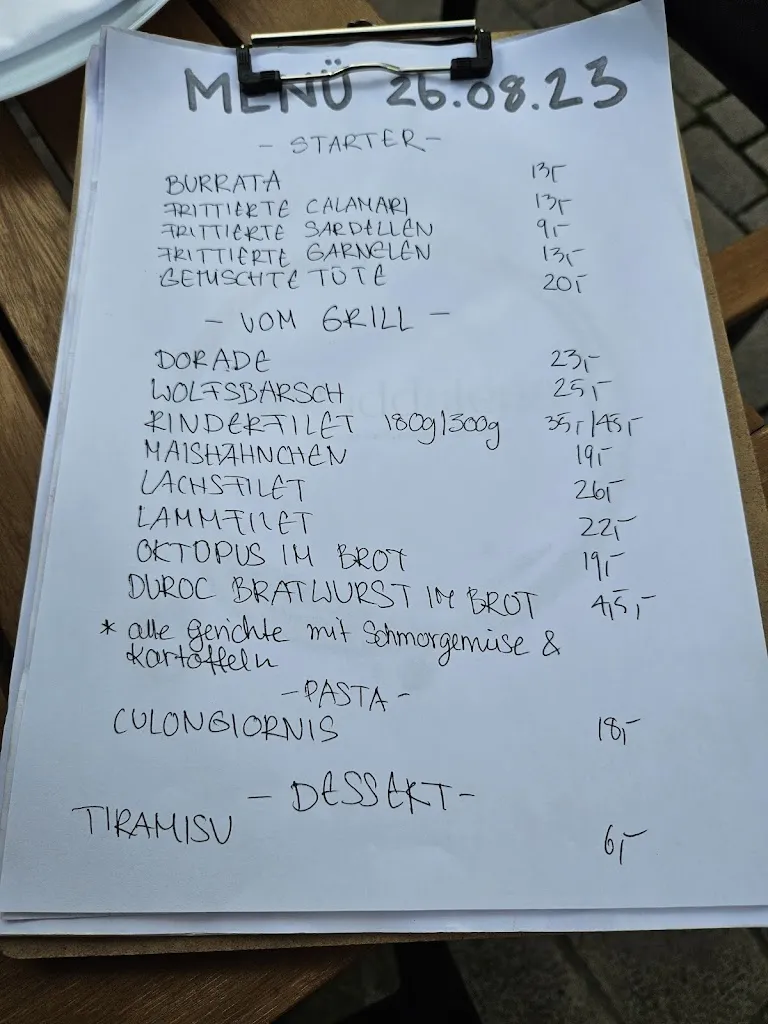 MENÜ 26.08.23
- STARTER -
BURRATA 13,-
FRITTIERTE CALAMARI 13,-
FRITTIERTE SARDELLEN 9,-
FRITTIERTE GARNELEN 13,-
GEMISCHTE TÜTE 20,-
- VOM GRILL -
DORADE 23,-
WOLFSBARSCH 25,-
RINDERFILET 180g/300g 35,-/45,-
MAISHÄHNCHEN 19,-
LACHSFILET 26,-
LAMMFILET 22,-
OKTOPUS IM BROT 19,-
DUROC BRATWURST IM BROT 4,5,-
* alle Gerichte mit Schmorgemüse &
Kartoffeln
- PASTA -
CULONGIORNIS 18,-
- DESSERT -
TIRAMISU 6,-